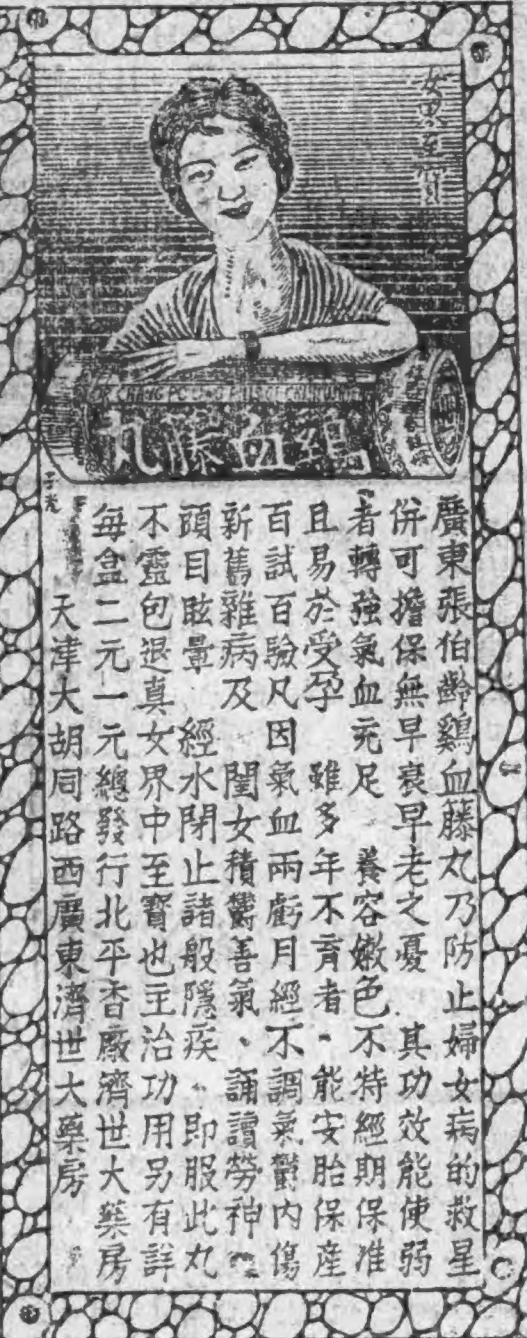 女界至寶
鷄血藤丸
廣東張伯齡鷄血藤丸乃防止婦女病的救星
併可擔保無早衰早老之憂 其功效能使弱
者轉強氣血充足 養容嫩色不特經期保准
且易於受孕 雖多年不育者、能安胎保產
百試百驗凡因氣血兩虧月經不調氣鬱內傷
新舊雜病及 閨女積鬱善氣、誦讀勞神
頭目眩暈 經水閉止諸般隱疾、即服此丸
不靈包退真女界中至寶也主治功用另有詳
每盒二元一元總發行北平香廠濟世大藥房
天津大胡同路西廣東濟世大藥房